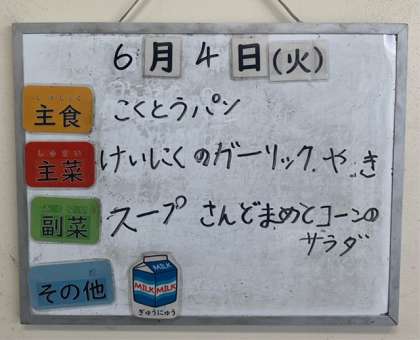 6月4日(火)
しゅしょく
主食 こくとうパン
しゅさい
主菜 けいにくのガーリックやき
副菜 スープ さんどまめとコーンの
サラダ
その他
MILK
MILK MILK
ぎゅうにゅう